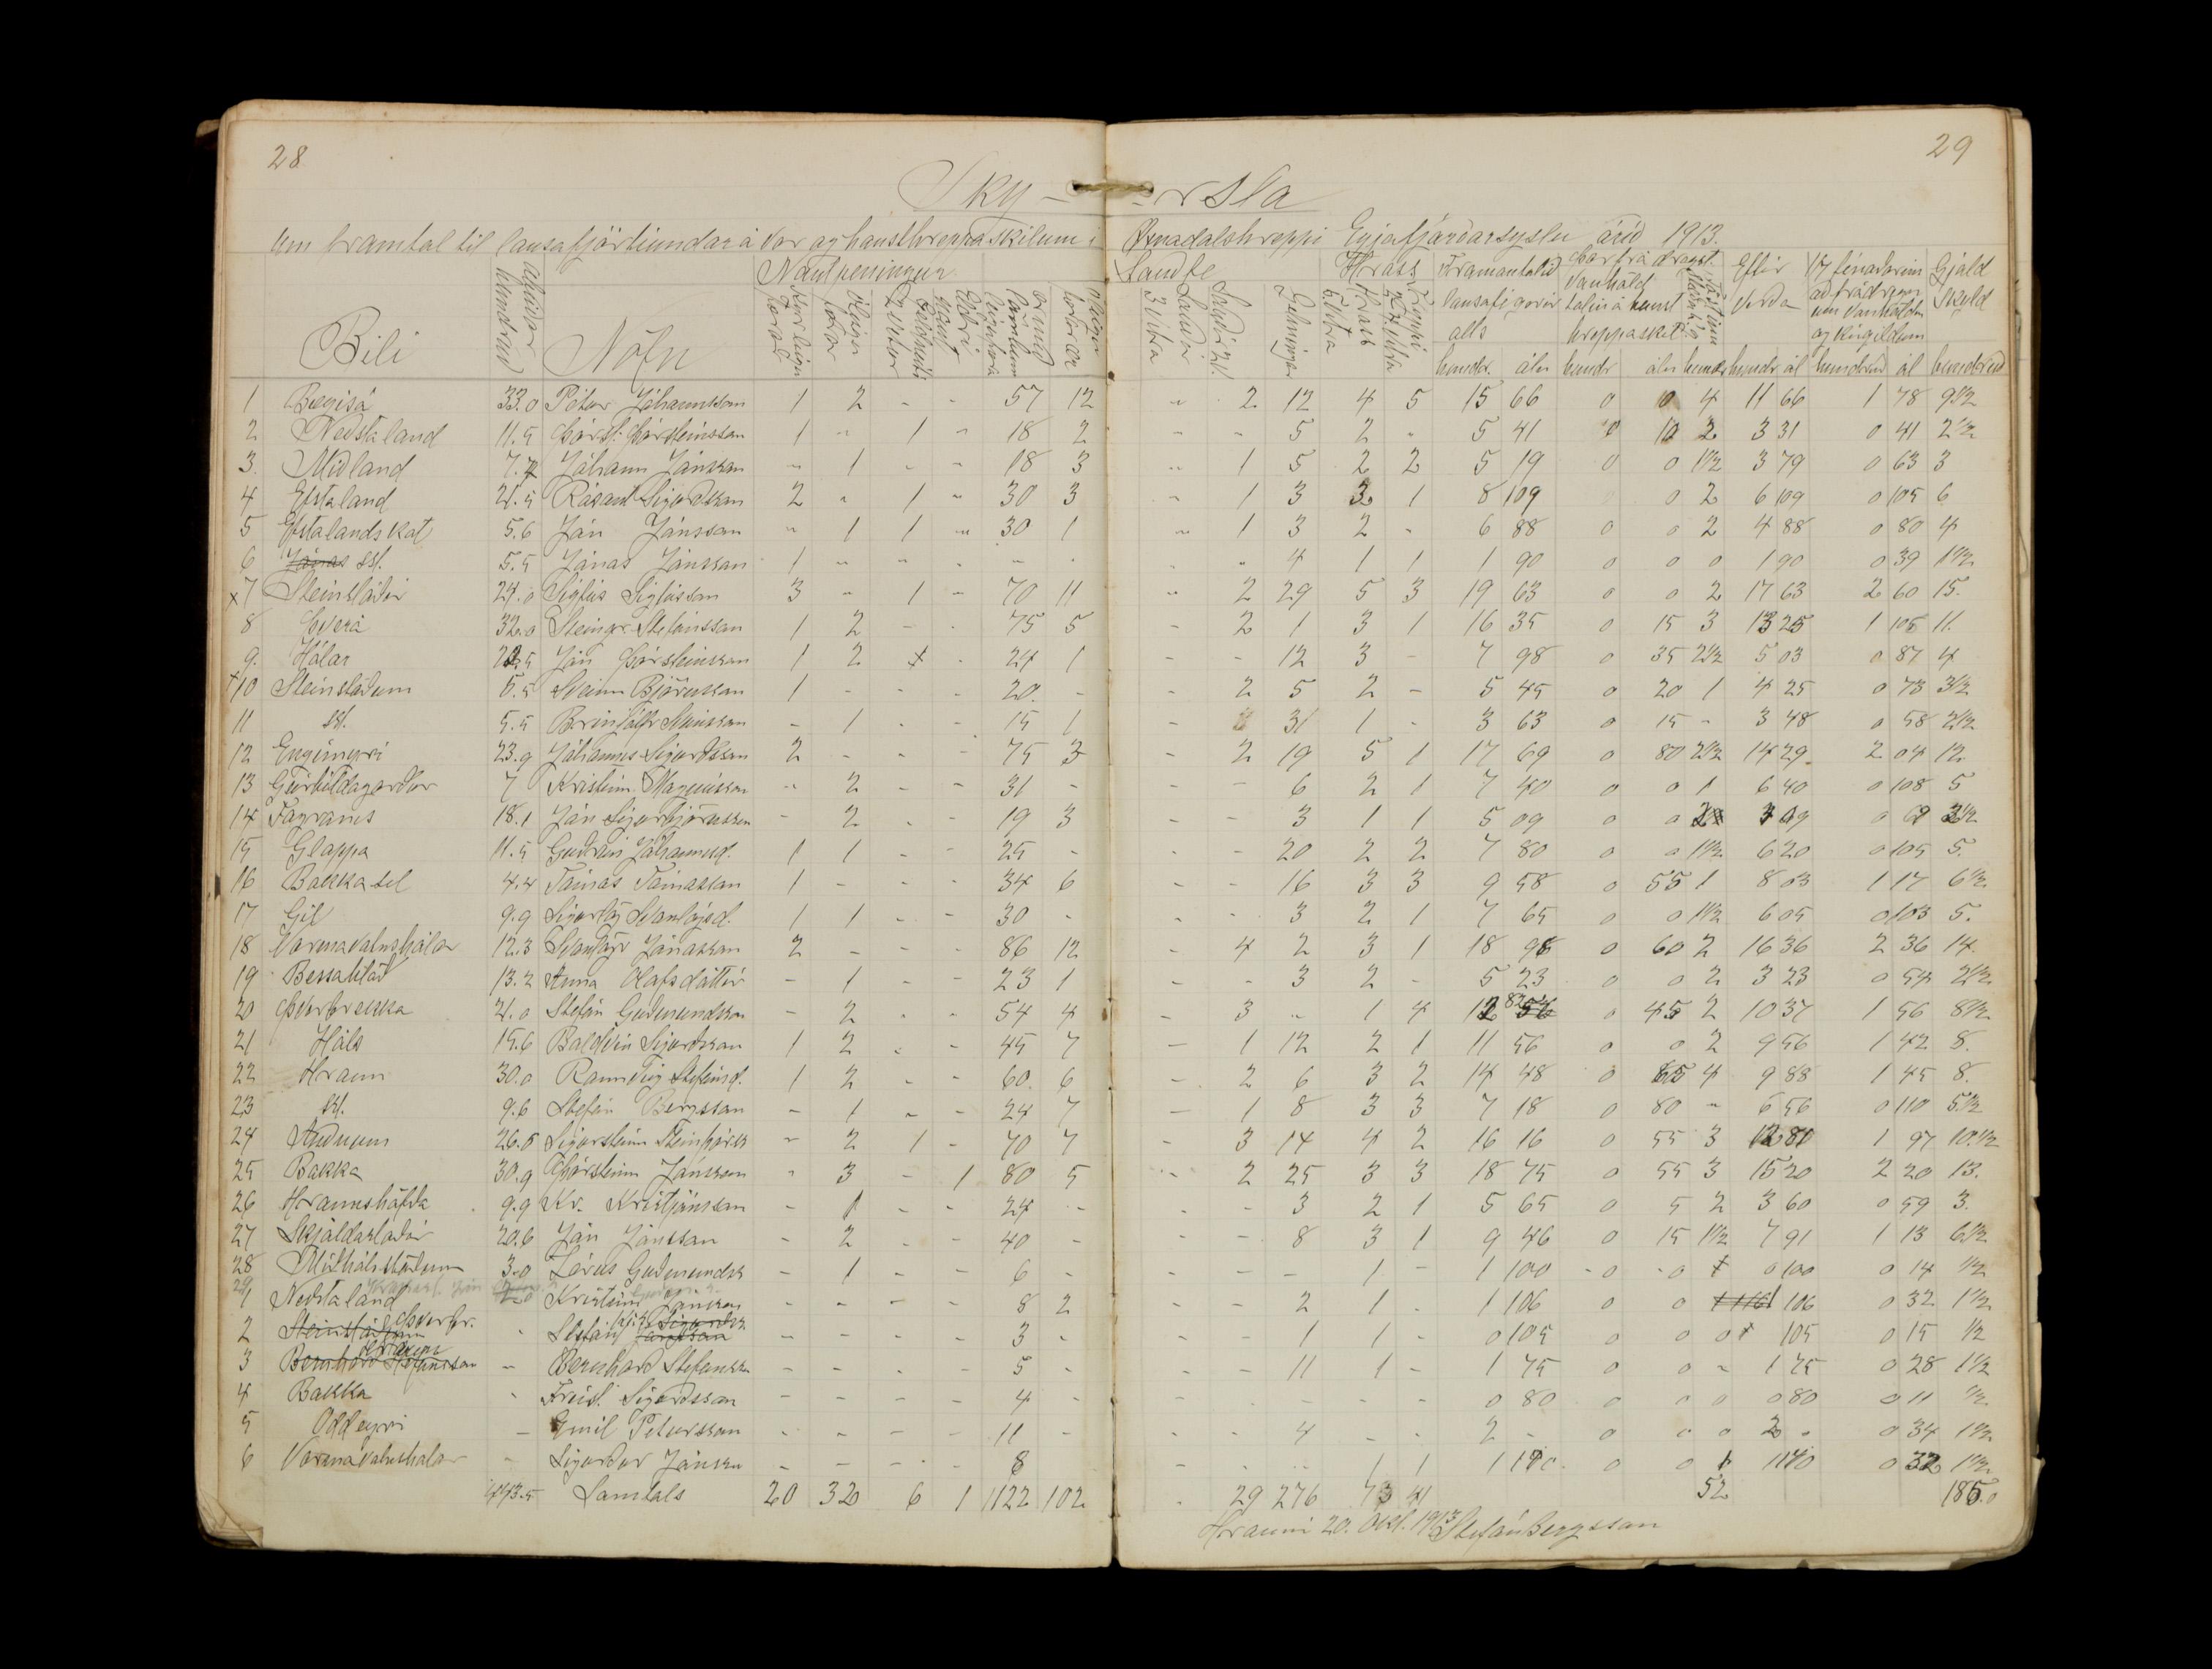 28
29
Ský - - rsla
um framtal til lausafjártíundar á vor og hausthreppaskilum í Öxnadalshreppi Eyjafjarðarsyslu árið 1913.
Nautpeningur Sauðfé Hross Framantalið Þar frá dregst Eftir 1/7 fénaðarins Gjald
lausafé gerir alls vanhöld talin á haust hreppaskil verða að frádregnum vanhöldum og kúgildum skyld
Býli Nöfn
hundr. áln hundr áln hundr hundr ál hundruð ál hundruð
1 Bægisá 33.0 Pétur Jóhannsson 1 2 - - 57 12 - 2 12 4 5 15 66 0 0 4 11 66 1 78 9 1/2
2 Neðstaland 11.5 Þorst: Þorsteinsson 1 - 1 - 18 2 - - 5 2 - 5 41 0 10 2 3 31 0 41 2 1/2
3. Miðland 7.7 Jóhann Jónsson - 1 - - 18 3 - 1 5 2 2 5 19 0 0 1 1/2 3 79 0 63 3
4 Efstaland 21.5 Rósant Sigurðsson 2 - 1 - 30 3 - 1 3 3 1 8 109 0 2 6 109 0 105 6
5 Efstalandskot 5.6 Jón Jónsson - 1 1 - 30 1 - 1 3 2 - 6 88 0 0 2 4 88 0 80 4
6 sst. 5.5 Jónas Jónsson 1 - - - - - - - 4 1 1 1 90 0 0 0 1 90 0 39 1 1/2
x7 Steinstaðir 24.0 Sigfús Sigfússon 3 - 1 - 70 11 - 2 29 5 3 19 63 0 0 2 17 63 2 60 15.
8 Þverá 32.0 Steingr. Stefánsson 1 2 - - 75 5 - 2 1 3 1 16 35 0 15 3 13 25 1 105 11.
9. Hólar Jón Þorsteinsson 1 2 - 24 1 - - 12 3 - 7 98 0 35 2 1/2 5 03 0 87 4
x10 Steinstöðum 5.5 Sveinn Björnsson 1 - - - 20. - - 2 5 2 - 5 45 0 20 1 4 25 0 73 3 1/2
11 sst. 5.5 - 1 - - 15 1 - 31 1 - 3 63 0 15 - 3 48 0 58 2 1/2
12 Engimýri 23.9 Jóhannes Sigurðsson 2 - - - 75 3 - 2 19 5 1 17 69 0 80 2 1/2 14 29 2 04 12
13 Geirhildagarðar 7 Kristinn Magnússon - 2 - - 31 - - - 6 2 1 7 40 0 0 1 6 40 0 108 5
14 Fagranes 18.1 Jón Sigurbjörnsson - 2 - - 19 3 - - 3 1 1 5 09 0 0
15 Gloppa 11.5 Guðrún Jóhannesd. 1 1 - - 25 - - - 20 2 2 7 80 0 0 1 1/2 6 20 0 105 5.
16 Bakkasel 4.4 Tómas Tómasson 1 - - - 34 6 - - 16 3 3 9 58 0 55 1 8 03 1 17 6 1/2
17 Gil 9.9 Sigurlög Svanlögsd. 1 1 - - 30 - - - 3 2 1 7 65 0 0 1 1/2 6 05 0 103 5.
18 Varmavatnshólar 12.3 Svanlögr Jónasson 2 - - - 86 12 - 4 2 3 1 18 96 0 60 2 16 36 2 36 14
19 Bessahlað 13.2 Anna Olafsdóttir - 1 - - 23 1 - - 3 2 - 5 23 0 0 2 3 23 0 54 2 1/2
20 Þverbrekka 21.0 Stefán Guðmundsson - 2 - - 54 4 - 3 - 1 4 12 82 0 45 2 10 37 1 56 8 1/2
21 Háls 15.6 Baldvin Sigurðsson 1 2 - - 45 7 - 1 12 2 1 11 56 0 0 2 9 56 1 42 8.
22 Hraun 30.0 Rannveig Stefánsd. 1 2 - - 60 6 - 2 6 3 2 14 48 0 65 4 9 88 1 45 8.
23 sst. 9.6 Stefán Bergsson - 1 - - 24 7 - 1 8 3 3 7 18 0 80 - 6 56 0 110 5 1/2
24 Auðnum 26.5 Sigursteinn Steinþórss - 2 1 - 70 7 - 3 14 4 2 16 16 0 55 3 12 80 1 97 10 1/2
25 Bakka 30.9 Þorsteinn Jónsson - 3 - 1 80 5 - 2 25 3 3 18 75 0 55 3 15 20 2 20 13.
26 Hraunshöfða 9.9 Kr. Kristjánsson - 1 - - 24 - - - 3 2 1 5 65 0 5 2 3 60 0 59 3.
27 Skjaldarstaðir 20.6 Jón Jónsson - 2 - - 40 - - - 8 3 1 9 46 0 15 1 1/2 7 91 1 13 6 1/2
28 Miðhálsstöðum 3.0 Lárus Guðmundss - 1 - - 6 - - - - 1 - 1 100 - 0 - 0 1 0 100 0 14 1/2
1 Neðstaland Kristinn Jónsson - - - - 8 2 - - 2 1 - 1 106 0 0 1 106 0 32 1 1/2
2 Þverbr. - Stefán - - - - 3 - - - 1 1 - 0 105 0 0 0 105 0 15 1/2
3 Bernharð Stefánsson - Bernharð Stefánss - - - - 5 - - - 11 1 - 1 75 0 0 - 1 75 0 28 1 1/2
4 Bakka - Friðf. Sigurðsson - - - - 4 - - - - - - 0 80 0 0 0 0 80 0 11 1/2
5 Oddeyri - Emil Petursson - - - - 11 - - - 4 - - 2 - 0 0 0 2 0 0 34 1 1/2
6 Varmavatnshólar - Sigurður Jónsson - - - - 8 - - - 1 1 1 140 0 0 1 140 0 32 1 1/2
443.5 Samtals 20 32 6 1 1122 102 - 29 276 73 41 52 185.0
Hrauni 20. Okt. 1913 Stefán Bergsson